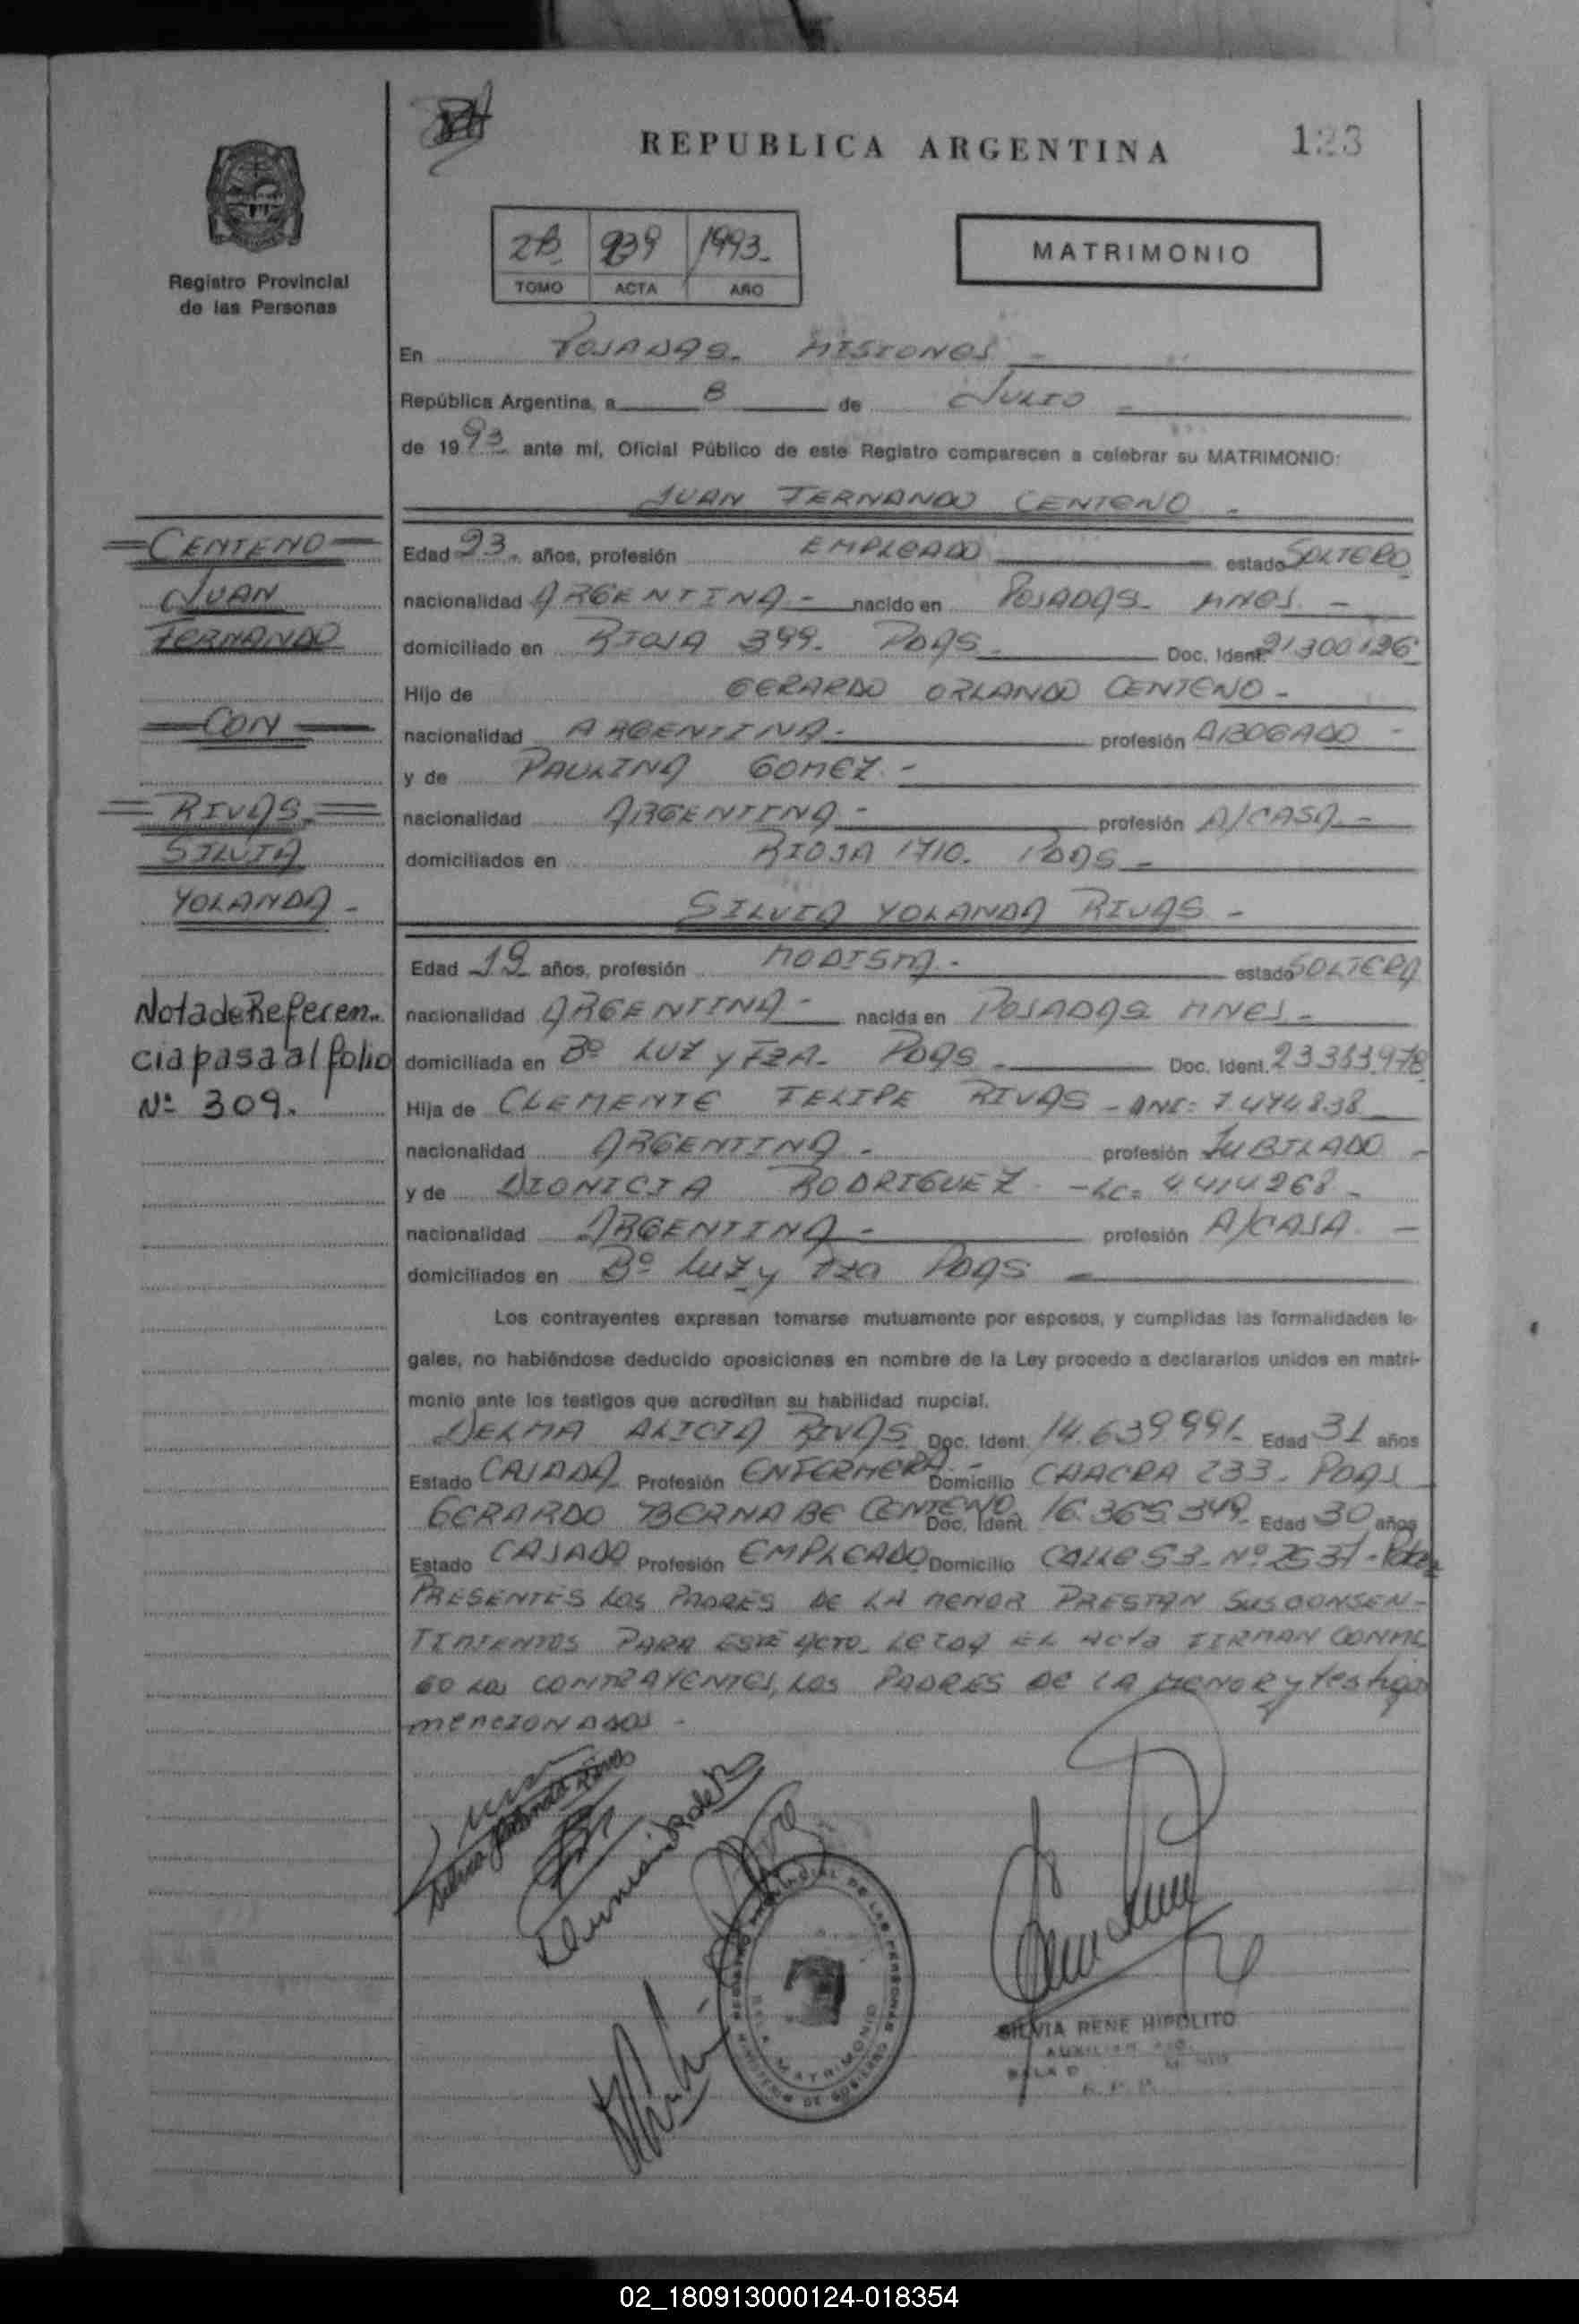 REPUBLICA ARGENTINA
123
Registro Provincial
de las Personas
2B 939 1993.
TOMO ACTA AÑO
MATRIMONIO
En POSADAS. MISIONES -
República Argentina, a 8 de JULIO -
de 1993 ante mí, Oficial Público de este Registro comparecen a celebrar su MATRIMONIO:
JUAN FERNANDO CENTENO -
CENTENO
JUAN
FERNANDO
CON
RIVAS
SILVIA
YOLANDA -
Nota de Referen-
cia pasa al folio
Nº 309.
Edad 23. años, profesión EMPLEADO estado SOLTERO
nacionalidad ARGENTINA - nacido en POSADAS - MNES. -
domiciliado en RIOJA 399. PDAS - Doc. Ident. 21.300.126
Hijo de GERARDO ORLANDO CENTENO -
nacionalidad ARGENTINA - profesión ABOGADO -
y de PAULINA GOMEZ. -
nacionalidad ARGENTINA - profesión A/CASA -
domiciliados en RIOJA 1710. PDAS -
SILVIA YOLANDA RIVAS -
Edad 19 años, profesión MODISTA - estado SOLTERA
nacionalidad ARGENTINA - nacida en POSADAS MNES -
domiciliada en Bº LUZ y FZA - PDAS - Doc. Ident.
Hija de CLEMENTE FELIPE RIVAS - 7.474.838
nacionalidad ARGENTINA - profesión JUBILADO -
y de DIONICIA RODRIGUEZ - LC= 4.414.268 -
nacionalidad ARGENTINA - profesión A/CASA. -
domiciliados en Bº Luz y Fza PDAS -
Los contrayentes expresan tomarse mutuamente por esposos, y cumplidas las formalidades le-
gales, no habiéndose deducido oposiciones en nombre de la Ley procedo a declararlos unidos en matri-
monio ante los testigos que acreditan su habilidad nupcial.
DELMA ALICIA RIVAS Doc. Ident. 14.639.991- Edad 31 años
Estado CASADA Profesión ENFERMERA - Domicilio CHACRA 233. PDAS
GERARDO BERNABE CENTENO. Doc. Ident. 16.365.349- Edad 30 años
Estado CASADO Profesión EMPLEADO Domicilio CALLE 53 - Nº 2537 -
PRESENTES LOS PADRES DE LA MENOR PRESTAN SUS CONSEN-
TIMIENTOS PARA ESTE ACTO. LEIDA EL ACTA FIRMAN CONMI
GO LOS CONTRAYENTES, LOS PADRES DE LA MENOR y testigos
MENCIONADOS -
Silvia Yolanda Rivas
REGISTRO PROVINCIAL DE LAS PERSONAS
MINISTERIO DE GOBIERNO
SALA MATRIMONIO
SILVIA RENE HIPOLITO
02_180913000124-018354